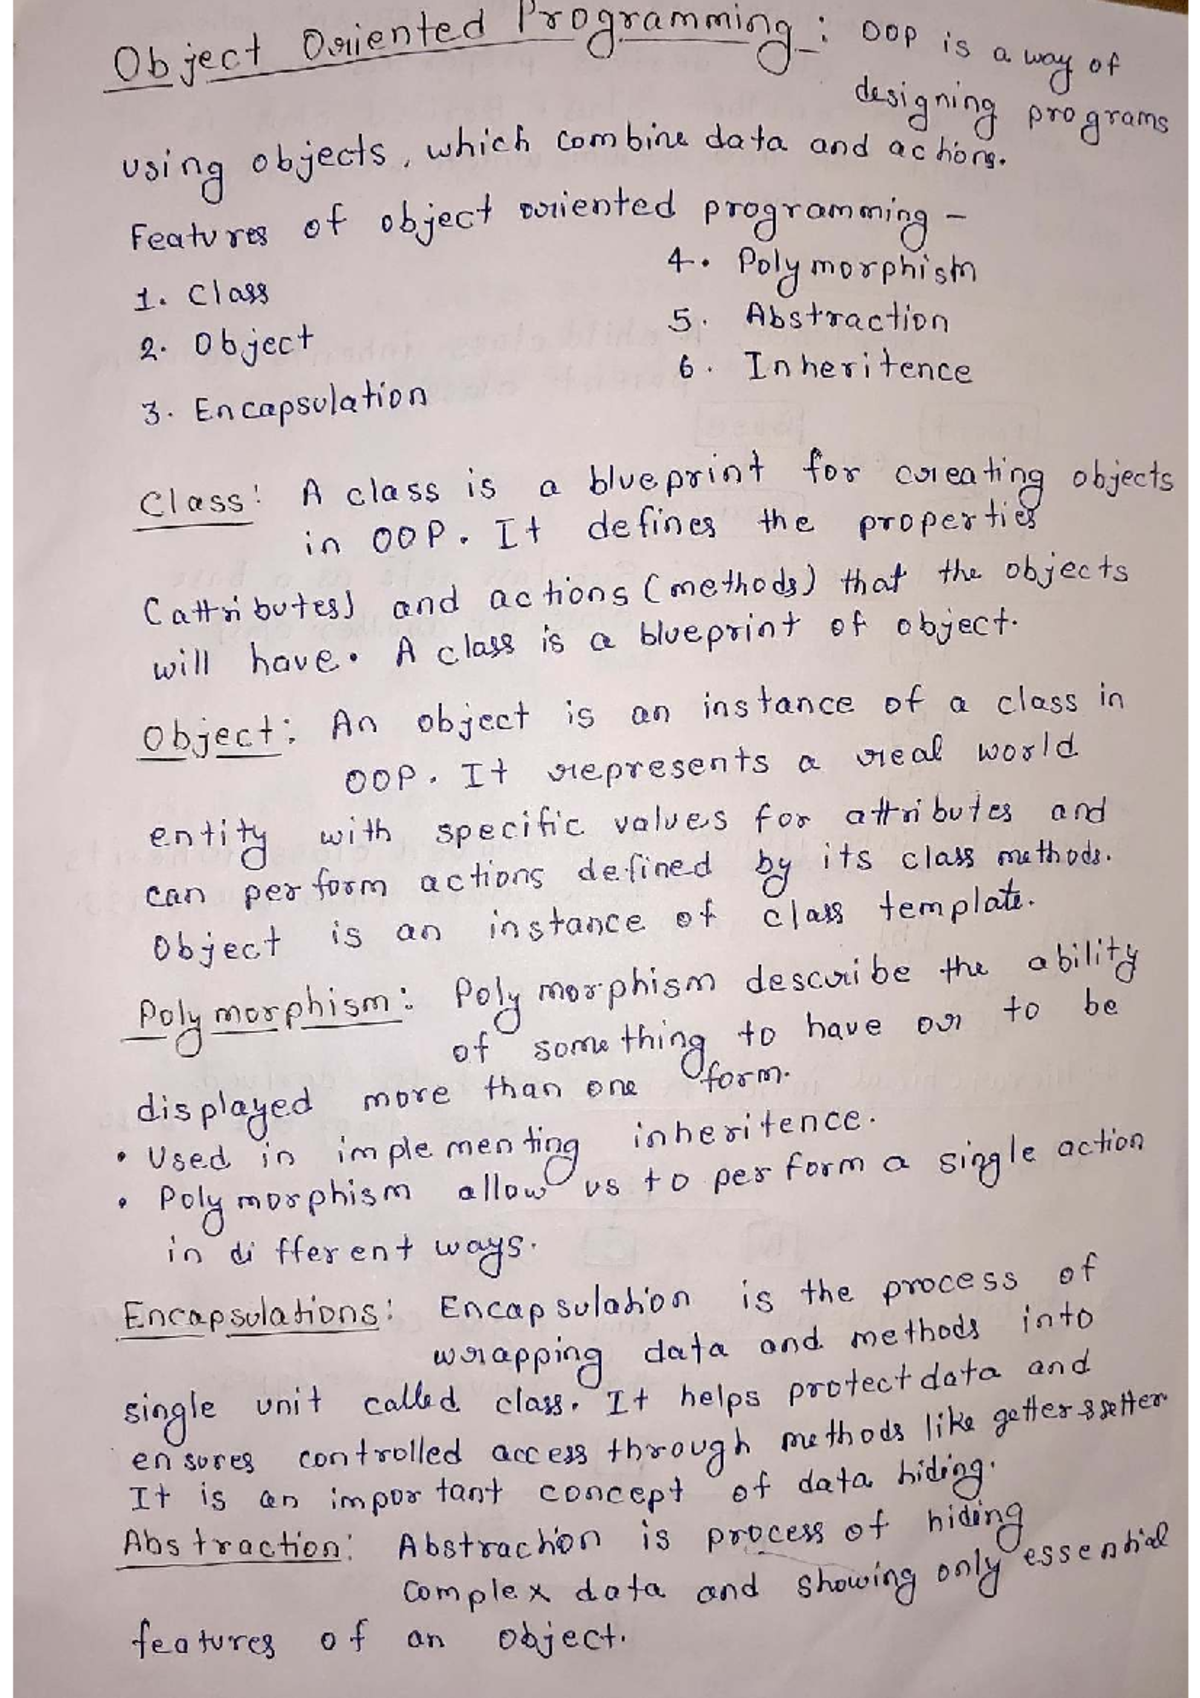 Object Oriented Programming : OOP is a way of
designing programs
using objects, which combine data and actions.
Features of object oriented programming -
1. Class
2. Object
3. Encapsulation
4. Polymorphism
5. Abstraction
6. Inheritence
Class: A class is a blueprint for creating objects
in OOP. It defines the properties
(attributes) and actions (methods) that the objects
will have. A class is a blueprint of object.
Object: An object is an instance of a class in
OOP. It represents a real world
entity with specific values for attributes and
can perform actions defined by its class methods.
Object is an instance of class template.
Polymorphism: Polymorphism describe the ability
of something to have or to be
displayed more than one form.
• Used in implementing inheritence.
• Polymorphism allow us to perform a single action
in different ways.
Encapsulations: Encapsulation is the process of
wrapping data and methods into
single unit called class. It helps protect data and
ensures controlled access through methods like getter & setter
It is an important concept of data hiding.
Abstraction: Abstraction is process of hiding
complex data and showing only essential
features of an object.